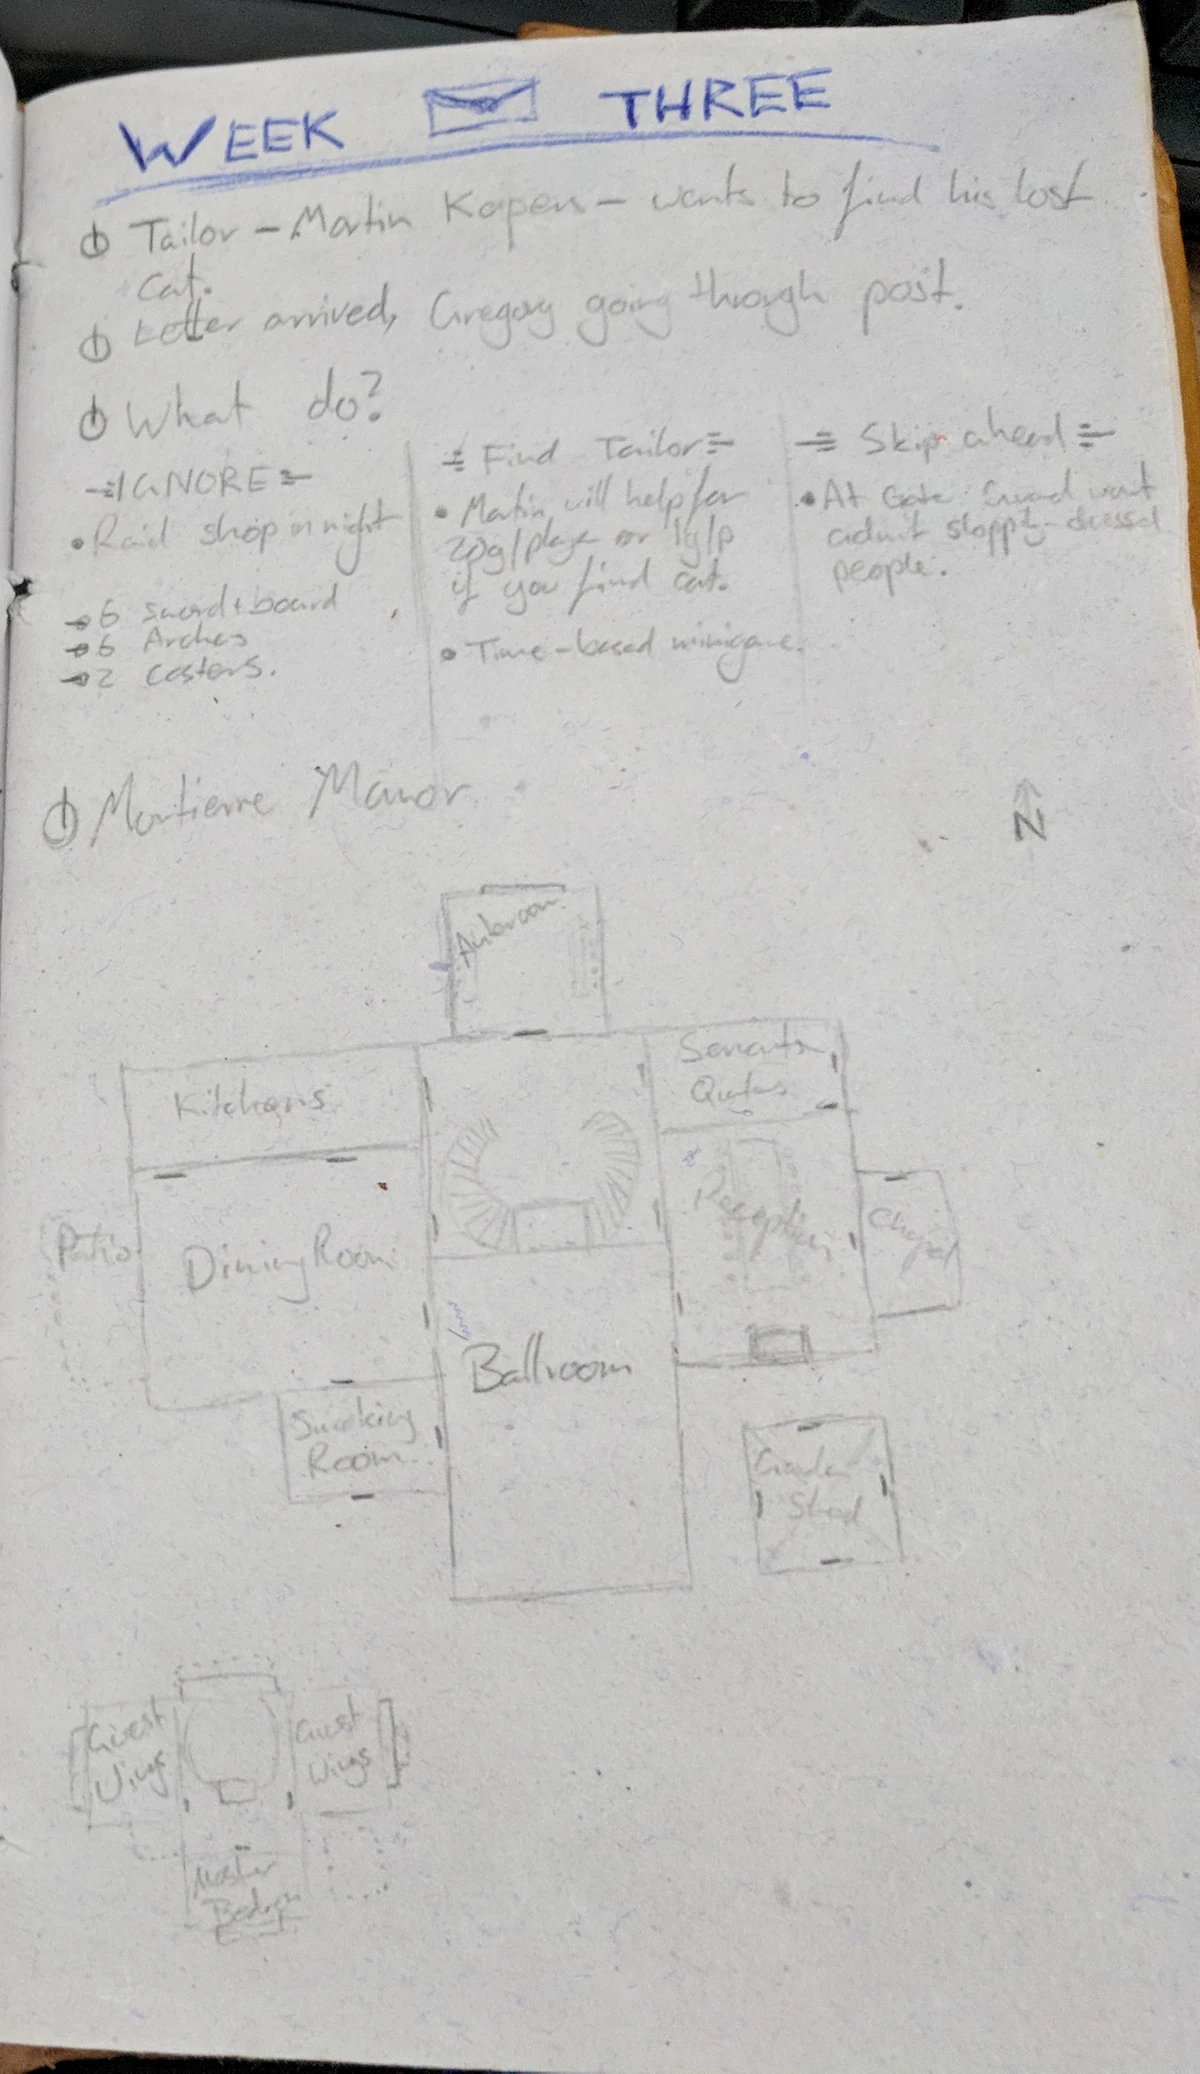 WEEK THREE
Tailor - Martin Kapers - wants to find his lost
Cat.
Letter arrived, Gregory going through post.
What do?
IGNORE
Raid shop in night
6 sword + board
6 Archers
2 Casters.
Find Tailor
Martin will help for
20g/player or 1g/p
if you find cat.
Time-based minigame.
Skip ahead
At Gate Guard wont
admit sloppily-dressed
people.
Manor
N
Anteroom
Kitchens
Servants
Patio
Dining Room
Reception
Chapel
Ballroom
Smoking
Room
Garden
Shed
Guest
Wings
Guest
Wings
Master